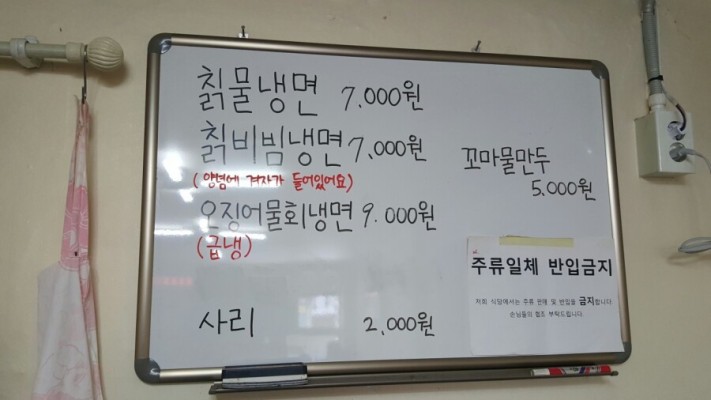 칡물냉면 7,000원
칡비빔냉면 7,000원
(양념에 겨자가 들어있어요)
오징어물회냉면 9.000원
(급냉)
사리 2,000원
꼬마물만두
5.000원
주류일체 반입금지
저희 식당에서는 주류 판매 및 반입을 금지합니다.
손님들의 협조 부탁드립니다.